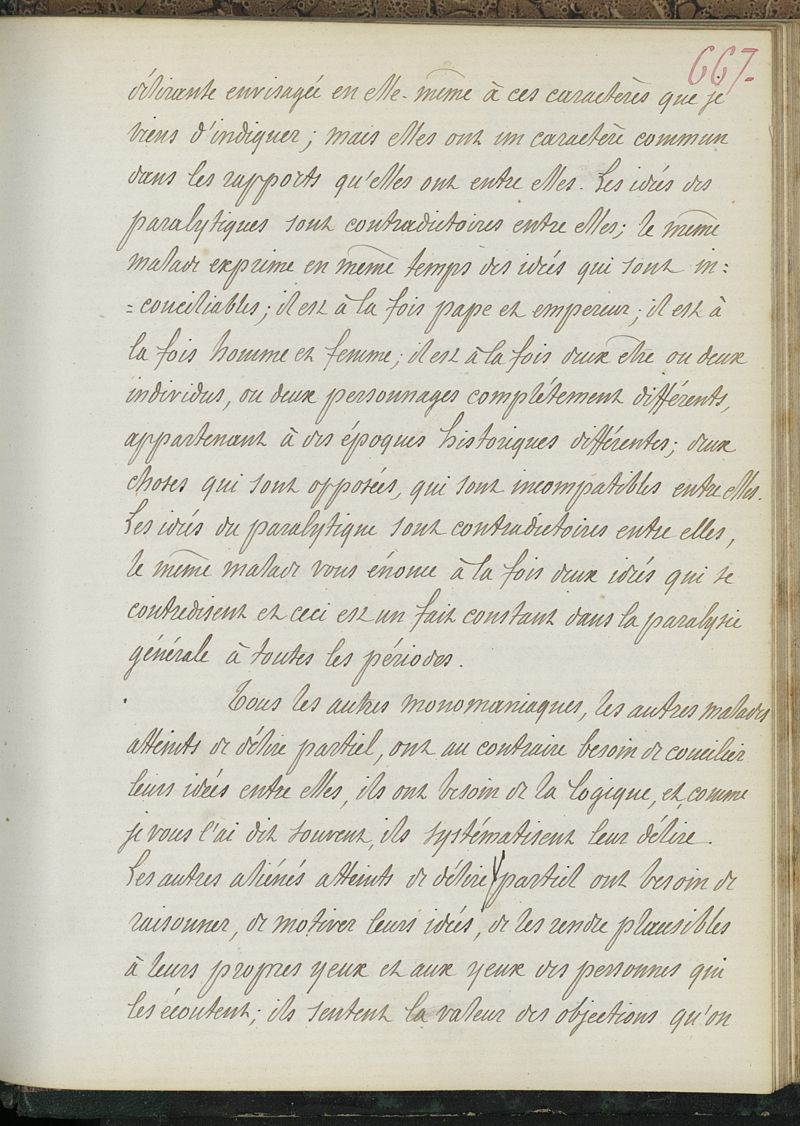 667.
délirante envisagée en elle-même à ces caractères que je
viens d'indiquer; mais elles ont un caractère commun
dans les rapports qu'elles ont entre elles. Les idées des
paralytiques sont contradictoires entre elles; le même
malade exprime en même temps des idées qui sont in=
=conciliables; il est à la fois pape et empereur; il est à
la fois homme et femme; il est à la fois deux être ou deux
individus, ou deux personnages complétement différents,
appartenant à des époques historiques différentes; deux
choses qui sont opposées, qui sont incompatibles entre elles.
Les idées du paralytique sont contradictoires entre elles,
le même malade vous énonce à la fois deux idées qui se
contredisent et ceci est un fait constant dans la paralysie
générale à toutes les périodes.
Tous les autres monomaniaques, les autres malades
atteints de délire partiel, ont au contraire besoin de concilier
leurs idées entre elles, ils ont besoin de la logique, et, comme
je vous l'ai dit souvent, ils systématisent leur délire.
Les autres aliénés atteints de délire partiel ont besoin de
raisonner, de motiver leurs idées, de les rendre plausibles
à leurs propres yeux et aux yeux des personnes qui
les écoutent; ils sentent la valeur des objections qu'on